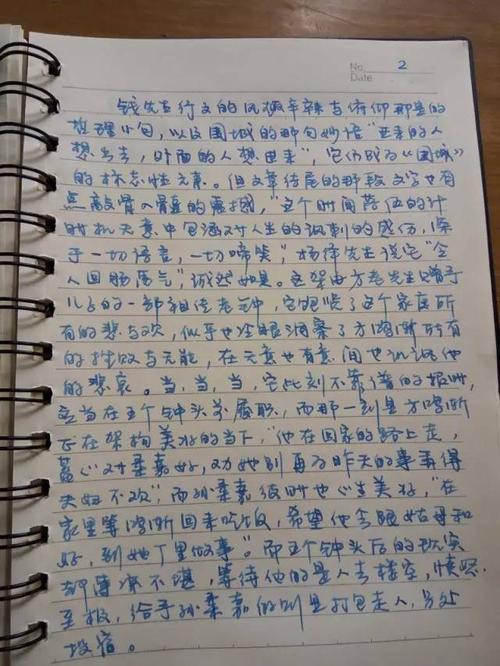 No. 2
Date
钱先生行文的风趣辛辣与俯仰那是的
哲理小句,以及围城的那句妙语“进来的人
想出去,外面的人想进来”,它仍成为《围城》
的标志性元素。但文章结尾的那段文字也有
点敲骨入骨髓的震撼,“这个时间落伍的计
时机无意中包涵对人生的讽刺的感伤,深
于一切语言,一切啼笑”,杨绛先生说它“令
人回肠荡气”,诚然如是。这架由方老先生赠予
儿子的一部祖传老钟,它饱览了这个家庭所
有的悲与欢,似乎也注眼洞察了方鸿渐所有
的挫败与无能,在无意也有意间也讥讽他
的悲哀。当,当,当,它此刻不靠谱的报时,
应当在五个钟头前履职,而那一刻是方鸿渐
正在架构美好的当下,“他在回家的路上走,
蓄心对柔嘉好,劝她别再为昨天的事弄得
夫妇不欢”;而孙柔嘉彼时也心生美好,“在
家里等鸿渐回来吃饭,希望他会跟姑母和
好,到她厂里做事”。而五个钟头后的现实
却薄凉不堪,等待他的是人去楼空,愤怒
至极,给予孙柔嘉的则是打包走人,另处
投宿。